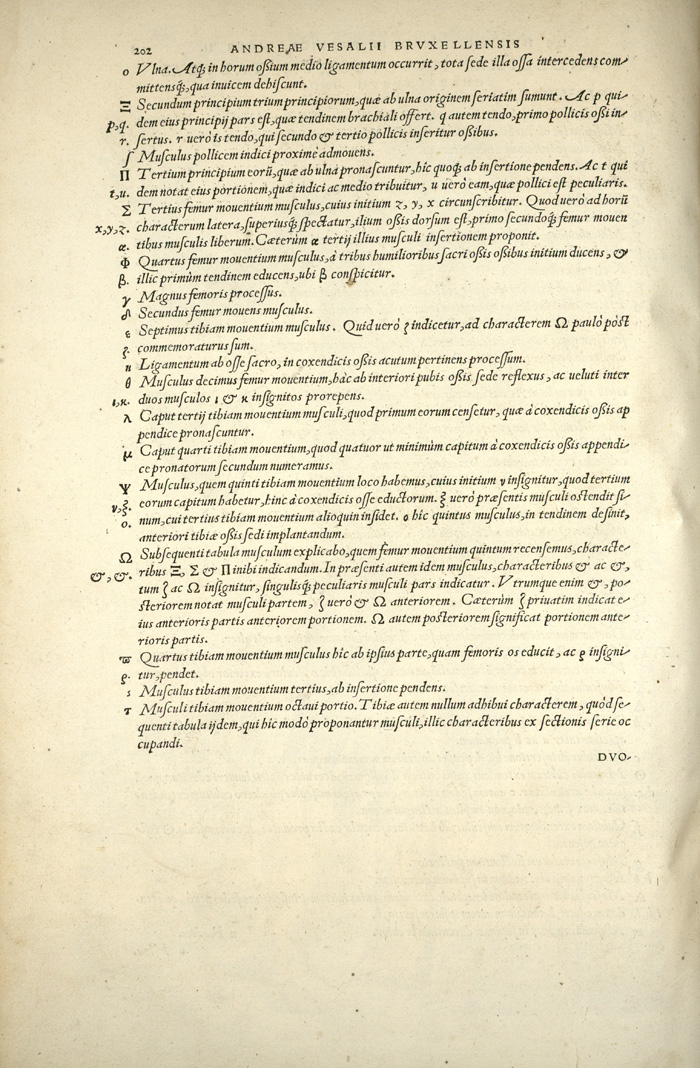 202 ANDREAE VESALII BRVXELLENSIS
o Vlna. Atq; in horum oßium medio ligamentum occurrit, tota sede illa ossa intercedens com-
mittensq́;, qua inuicem dehiscunt.
Ξ Secundum principium trium principiorum, quæ ab ulna originem seriatim sumunt. Ac p qui-
p,q. dem eius principij pars est, quæ tendinem brachiali offert. q autem tendo, primo pollicis oßi in-
r. sertus. r uerò is tendo, qui secundo & tertio pollicis inseritur oßibus.
ſ Musculus pollicem indici proximè admouens.
Π Tertium principium eorũ, quæ ab ulna pronascuntur, hic quoq; ab insertione pendens. Ac t qui
t,u. dem notat eius portionem, quæ indici ac medio tribuitur, u uerò eam, quæ pollici est peculiaris.
Σ Tertius femur mouentium musculus, cuius initium z, y, x circunscribitur. Quod uerò ad horũ
x,y,z. characterum latera, superiusq́; spectatur, ilium oßis dorsum est, primo secundoq́; femur mouen
α. tibus musculis liberum. Cæterùm α tertij illius musculi insertionem proponit.
Φ Quartus femur mouentium musculus, à tribus humilioribus sacri oßis oßibus initium ducens, &
β. illic primùm tendinem educens, ubi β conspicitur.
γ Magnus femoris processus.
δ Secundus femur mouens musculus.
ε Septimus tibiam mouentium musculus. Quid uerò ζ indicetur, ad characterem Ω paulò pòst
ζ. commemoraturus sum.
η Ligamentum ab osse sacro, in coxendicis oßis acutum pertinens processum.
θ Musculus decimus femur mouentium, hàc ab interiori pubis oßis sede reflexus, ac ueluti inter
ι,κ. duos musculos ι & κ insignitos prorepens.
λ Caput tertij tibiam mouentium musculi, quod primum eorum censetur, quæ à coxendicis oßis ap
pendice pronascuntur.
μ Caput quarti tibiam mouentium, quod quatuor ut minimùm capitum à coxendicis oßis appendi-
ce pronatorum secundum numeramus.
Ψ Musculus, quem quinti tibiam mouentium loco habemus, cuius initium ν insignitur, quod tertium
ν,ξ. eorum capitum habetur, hinc à coxendicis osse eductorum. ξ uerò præsentis musculi ostendit si-
ο. num, cui tertius tibiam mouentium alioquin insidet. ο hic quintus musculus, in tendinem desinit,
anteriori tibiæ oßis sedi implantandum.
Ω Subsequenti tabula musculum explicabo, quem femur mouentium quintum recensemus, characte-
&, &. ribus Ξ, Σ & Π inibi indicandum. In præsenti autem idem musculus, characteribus & ac &,
tum ζ ac Ω insignitur, singulisq́; peculiaris musculi pars indicatur. Vtrumque enim &, po-
steriorem notat musculi partem, ζ uerò & Ω anteriorem. Cæterùm ζ priuatim indicat e-
ius anterioris partis anteriorem portionem. Ω autem posteriorem significat portionem ante-
rioris partis.
ϖ Quartus tibiam mouentium musculus hic ab ipsius parte, quam femoris os educit, ac ρ insigni-
ρ. tur, pendet.
s Musculus tibiam mouentium tertius, ab insertione pendens.
τ Musculi tibiam mouentium octaui portio. Tibiæ autem nullum adhibui characterem, quòd se-
quenti tabula ijdem, qui hic modò proponantur musculi, illic characteribus ex sectionis serie oc
cupandi.
DVO-